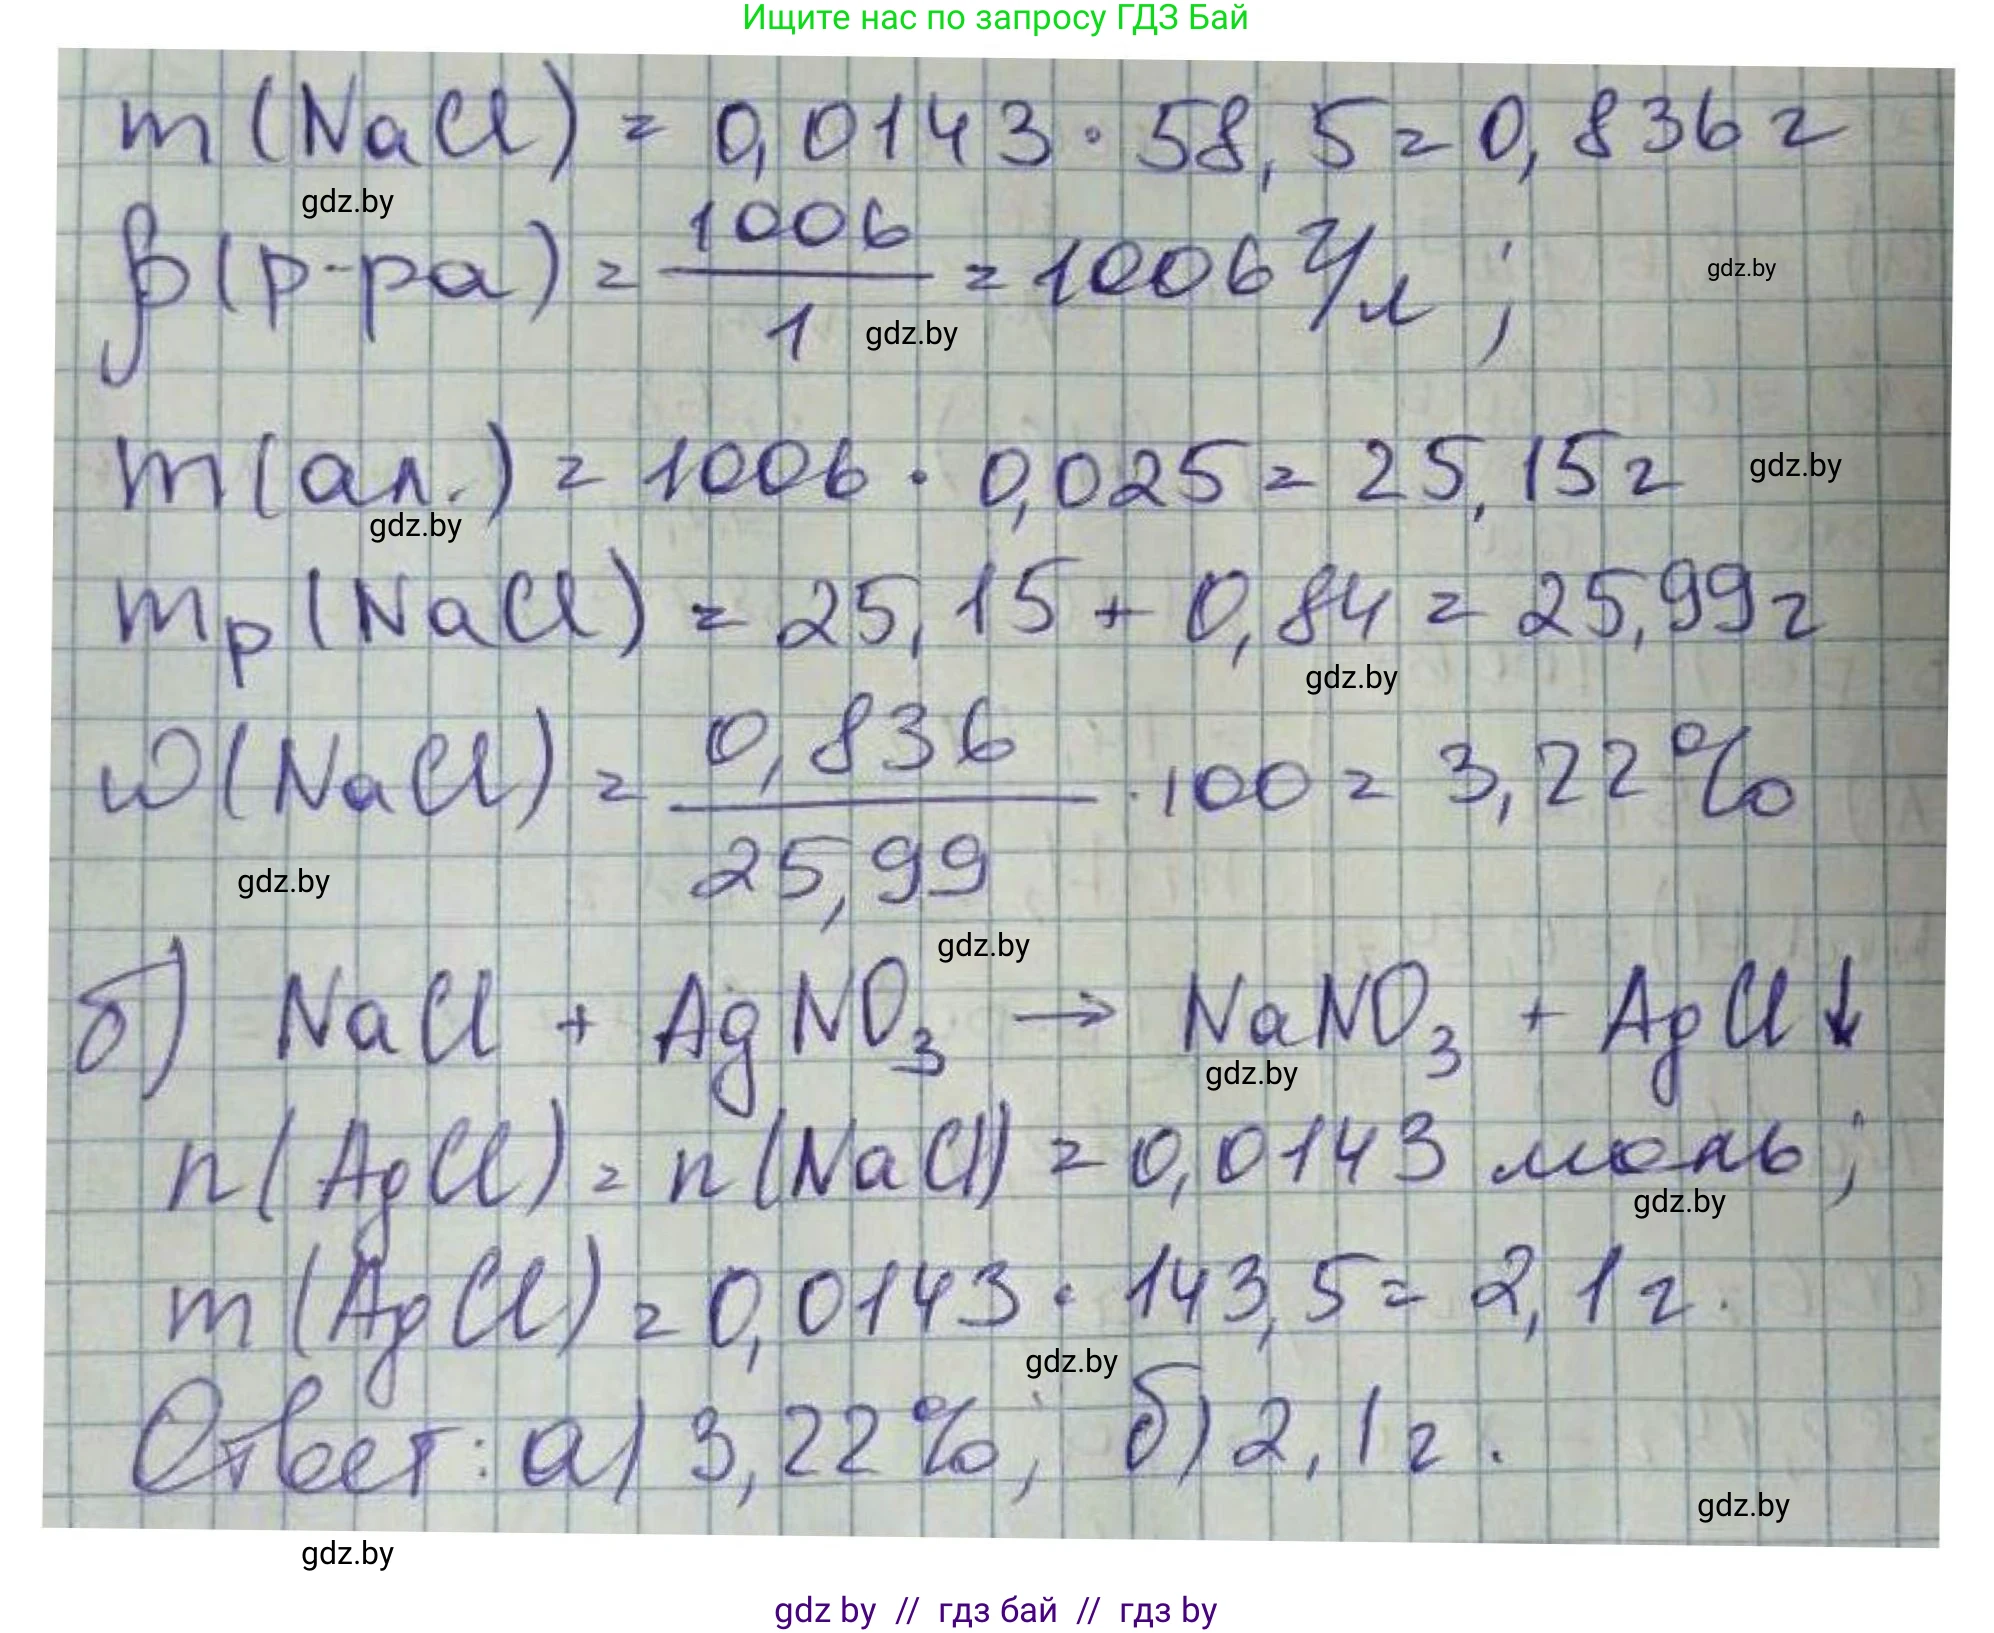 Ищите нас по запросу ГДЗ Бай
m(NaCl) = 0,0143 · 58,5 = 0,836 г
gdz.by
ρ(р-ра) = 1006/1 = 1006 г/л ;
gdz.by
gdz.by
m(ал.) = 1006 · 0,025 = 25,15 г
gdz.by
gdz.by
mр(NaCl) = 25,15 + 0,84 = 25,99 г
gdz.by
ω(NaCl) = 0,836/25,99 · 100 = 3,22 %
gdz.by
gdz.by
б) NaCl + AgNO₃ → NaNO₃ + AgCl↓
gdz.by
n(AgCl) = n(NaCl) = 0,0143 моль ;
gdz.by
m(AgCl) = 0,0143 · 143,5 = 2,1 г.
gdz.by
Ответ: а) 3,22 %; б) 2,1 г.
gdz.by
gdz.by
gdz by // гдз бай // гдз by